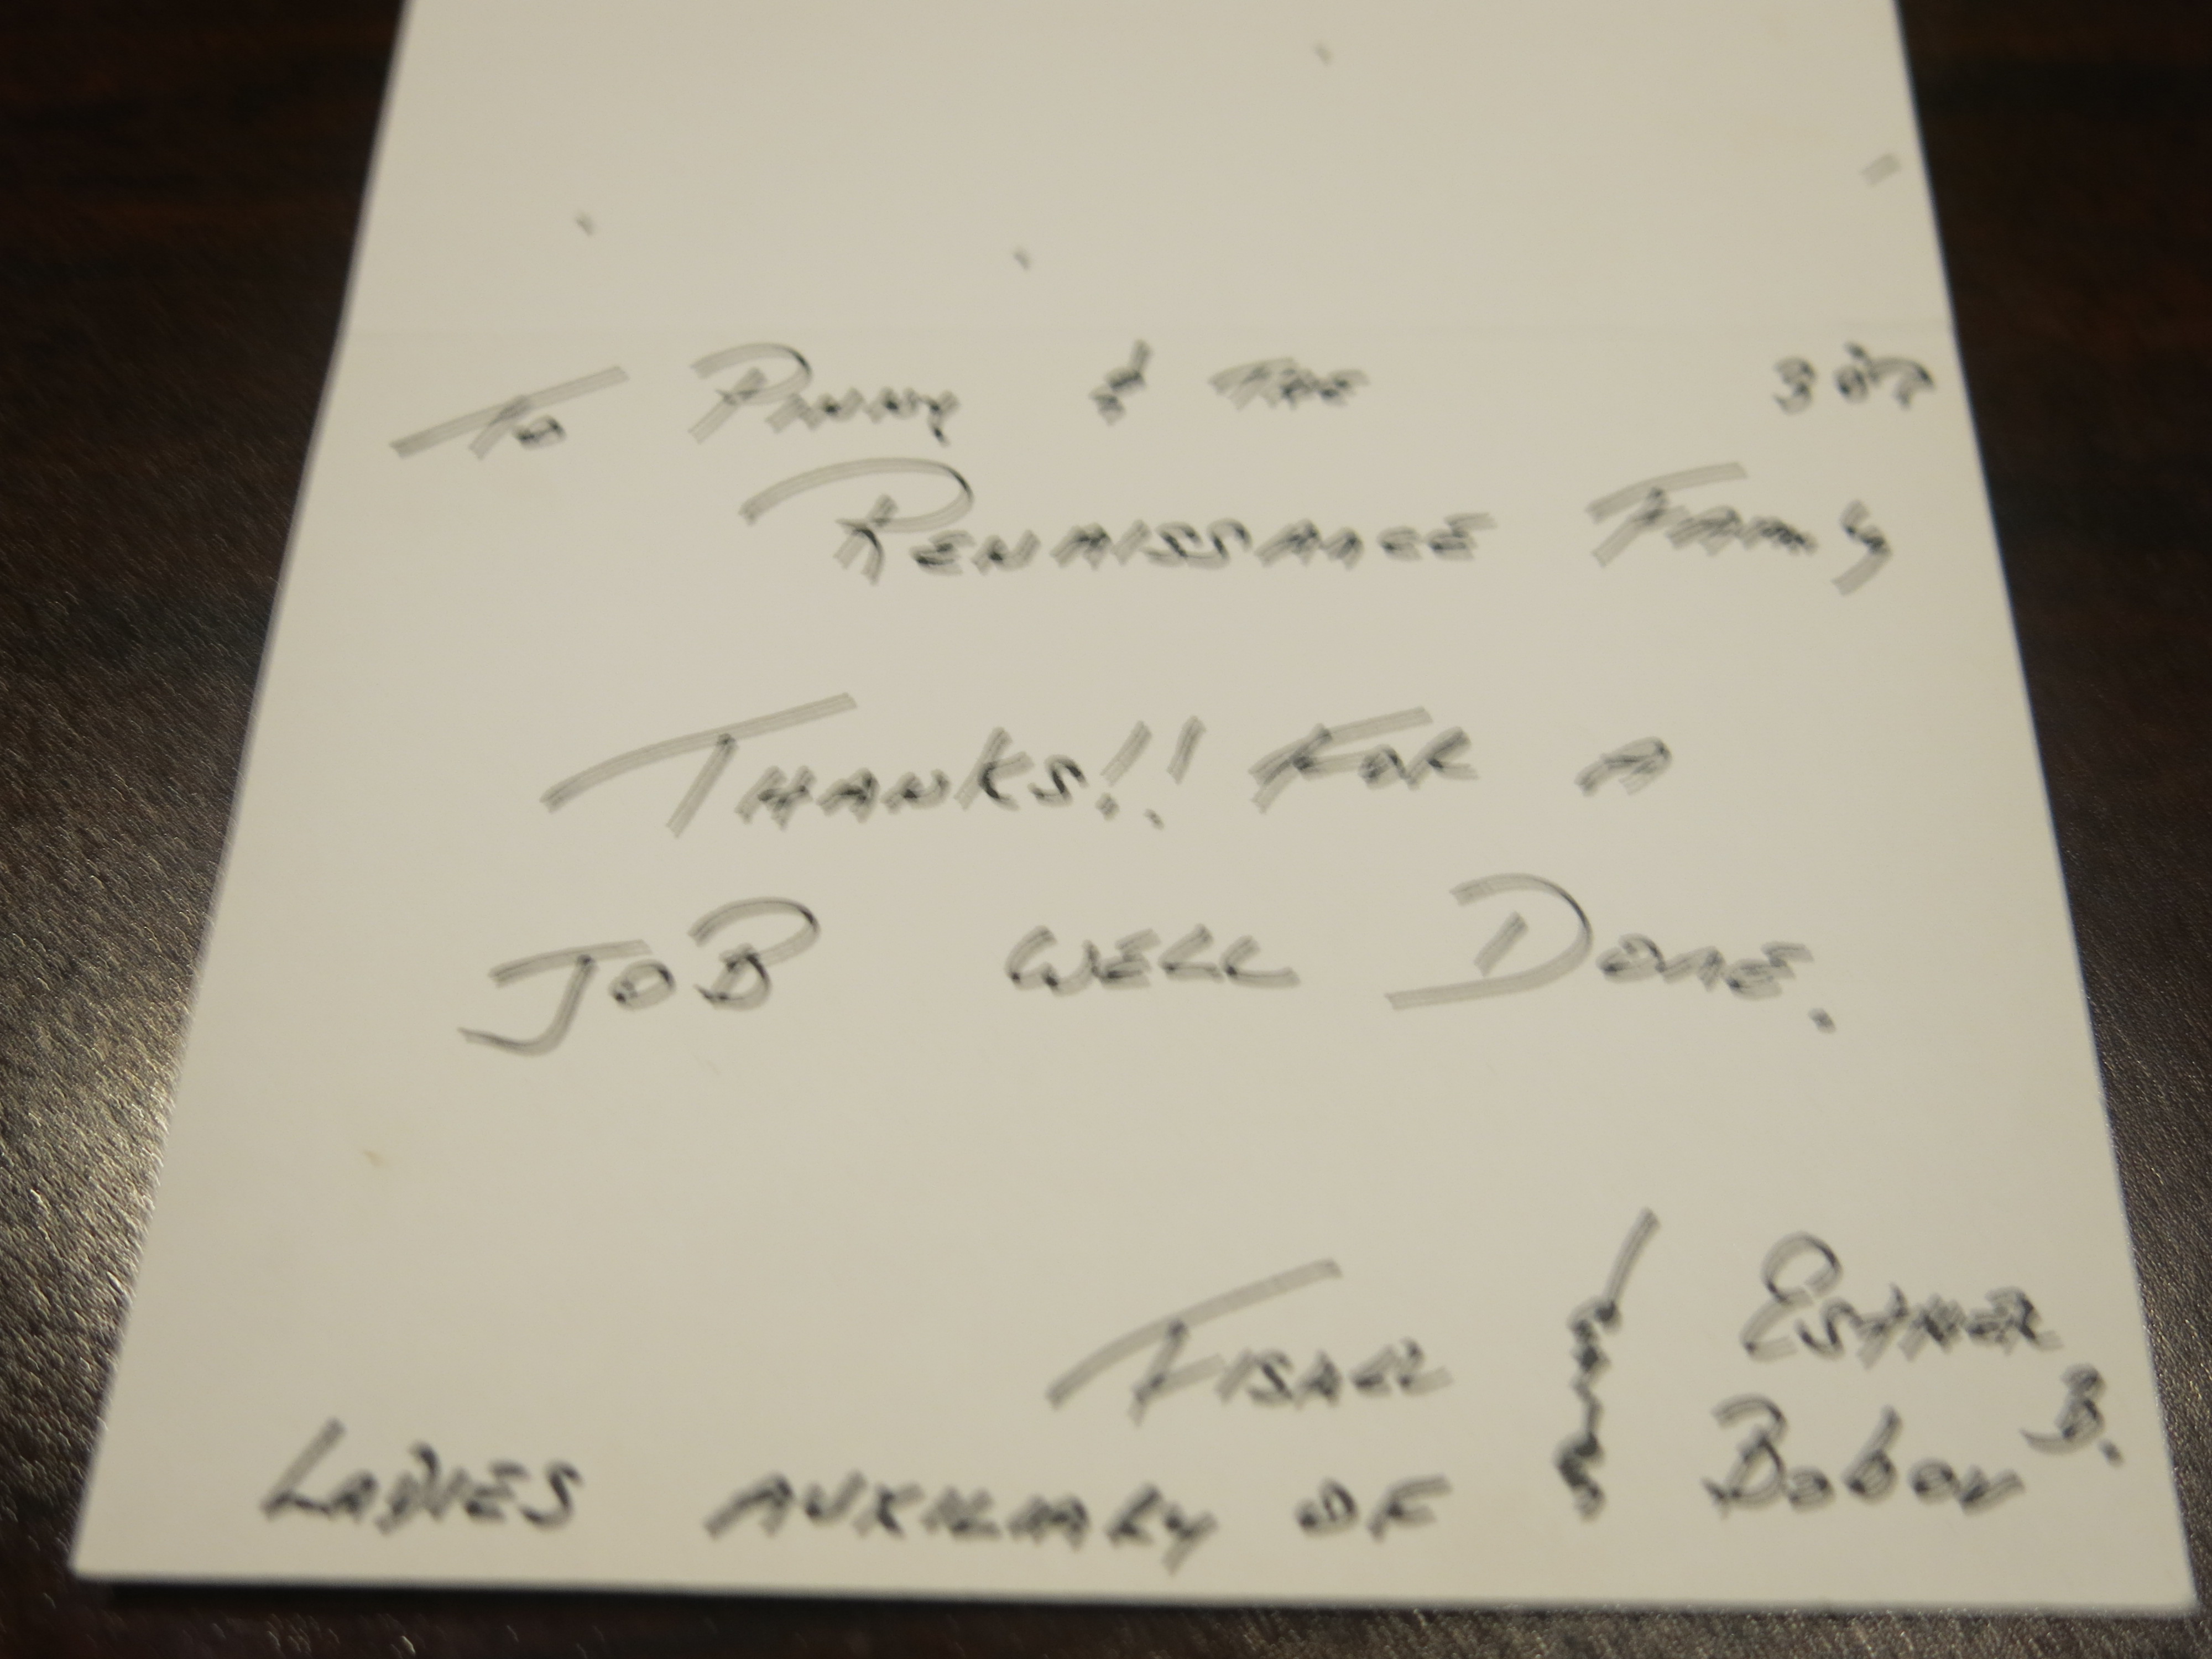 To Pinny & the
Renaissance Family
Thanks!! For a
Job well Done.
Fisher { Esther B.
Ladies Auxiliary of Bobov